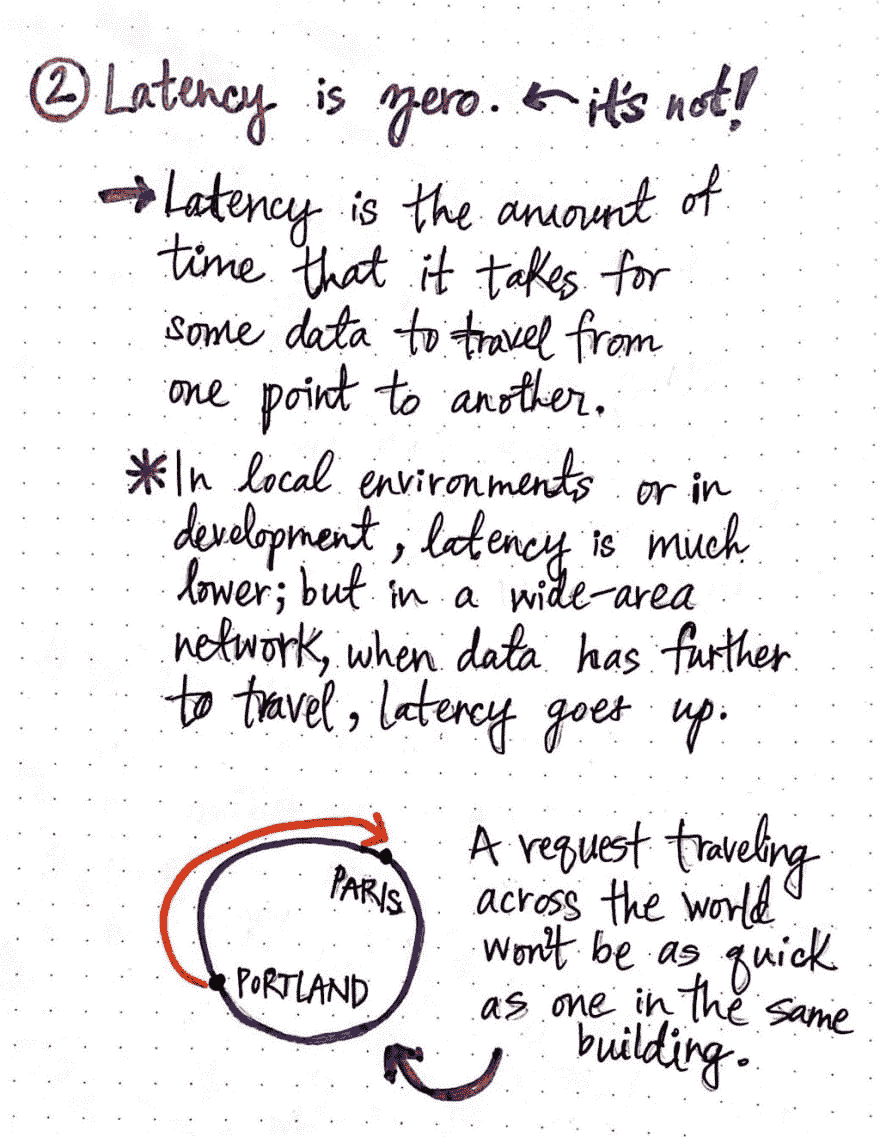 ② Latency is zero. ← it's not!
→ Latency is the amount of
time that it takes for
some data to travel from
one point to another.
* In local environments or in
development, latency is much
lower; but in a wide-area
network, when data has further
to travel, latency goes up.
PARIS
PORTLAND
A request traveling
across the world
won't be as quick
as one in the same
building.